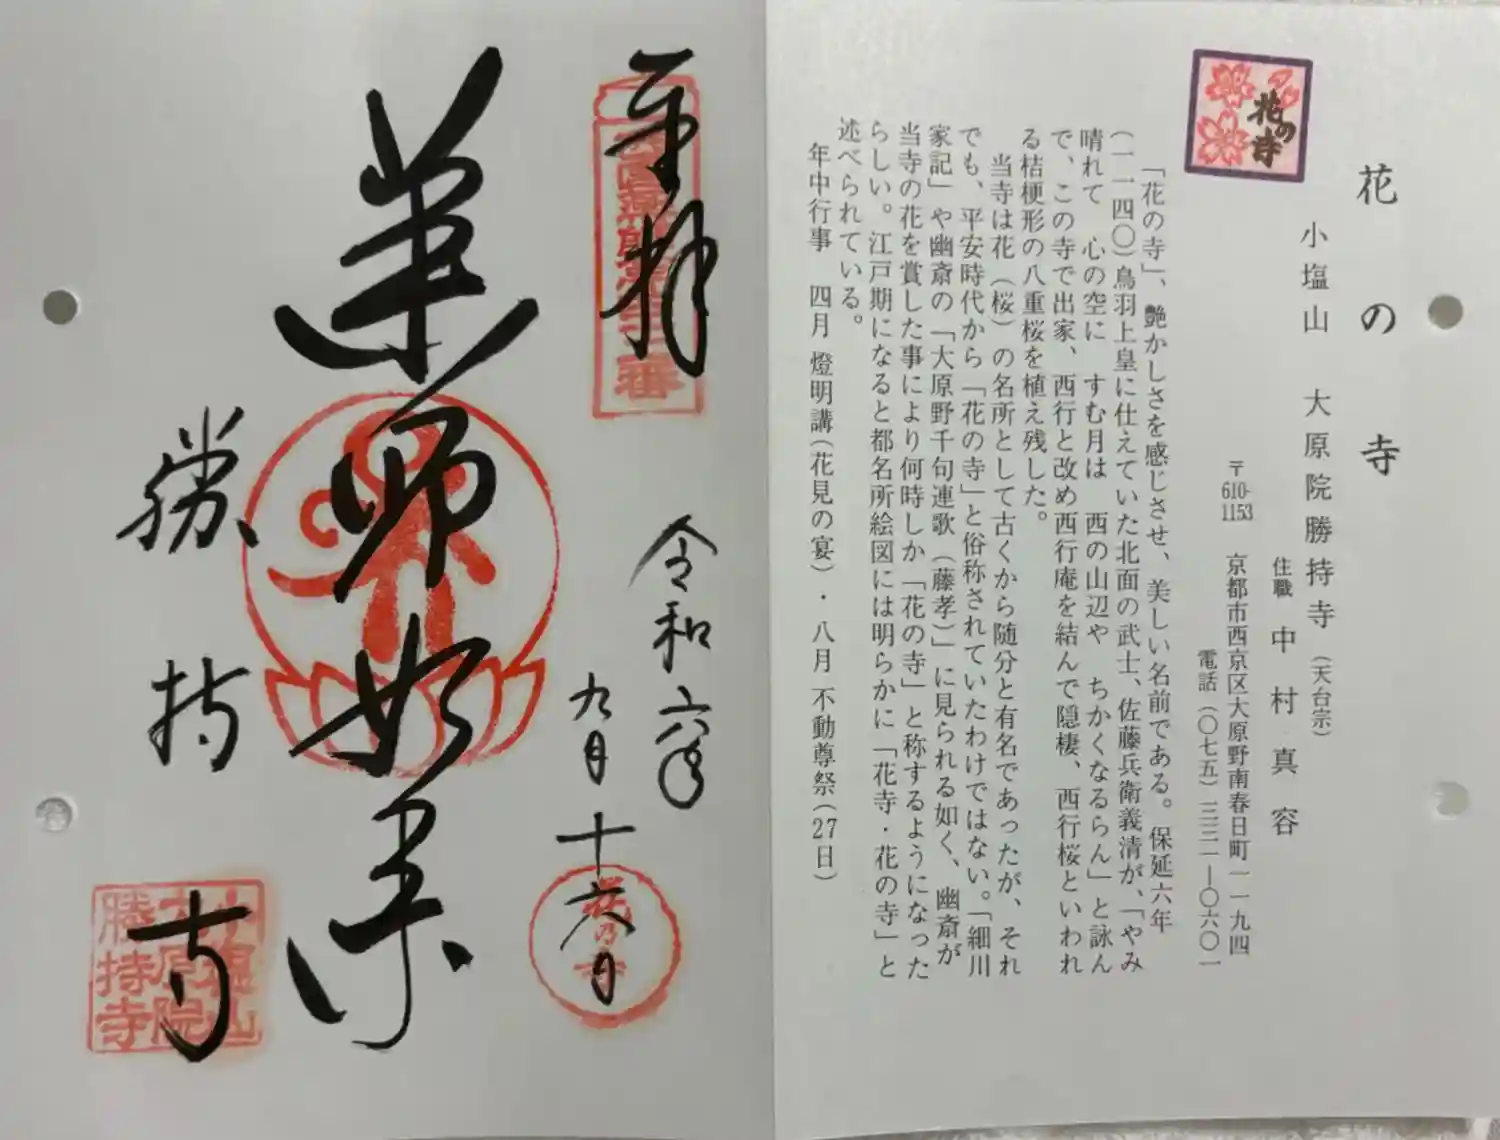 花の寺
小塩山　大原院勝持寺（天台宗）
住職　中村真容
〒610-1153　京都市西京区大原野南春日町一一九四
電話（〇七五）三三一―〇六〇一
花の寺
「花の寺」、艶かしさを感じさせ、美しい名前である。保延六年
（一一四〇）鳥羽上皇に仕えていた北面の武士、佐藤兵衛義清が、「やみ
晴れて　心の空に　すむ月は　西の山辺や　ちかくなるらん」と詠ん
で、この寺で出家、西行と改め西行庵を結んで隠棲、西行桜といわれ
る桔梗形の八重桜を植え残した。
当寺は花（桜）の名所として古くから随分と有名であったが、それ
でも、平安時代から「花の寺」と俗称されていたわけではない。「細川
家記」や幽斎の「大原野千句連歌（藤孝）」に見られる如く、幽斎が
当寺の花を賞した事により何時しか「花の寺」と称するようになった
らしい。江戸期になると都名所絵図には明らかに「花寺・花の寺」と
述べられている。
年中行事　四月 燈明講（花見の宴）・八月 不動尊祭（27日）
奉拝
令和六年
九月十六日
薬師如来
勝持寺
小塩山
大原院
勝持寺